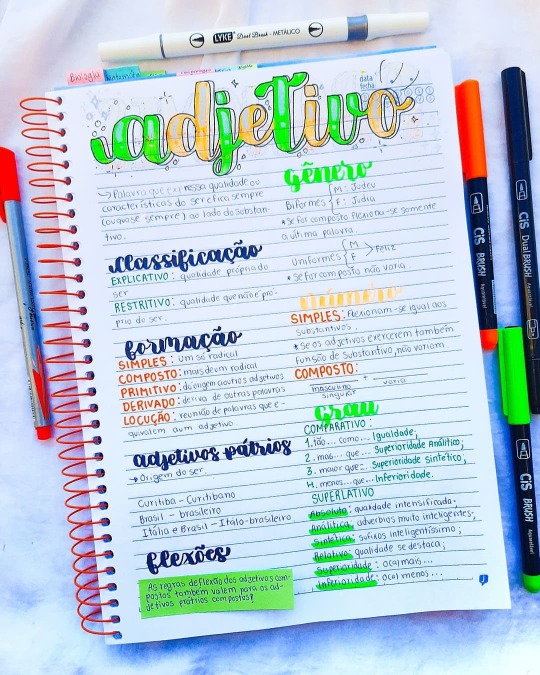 LYKE Dual Brush - METÁLICO
Biologia
adjetivo
data
fecha
→ Palavra que expressa qualidade ou
características do ser e fica sempre
(ou quase sempre) ao lado do substan-
tivo.
classificação
EXPLICATIVO: qualidade própria do
ser
RESTRITIVO: qualidade que não é pró-
prio do ser.
formação
SIMPLES: um só radical
COMPOSTO: mais de um radical
PRIMITIVO: dá origem a outros adjetivos
DERIVADO: deriva de outras palavras
LOCUÇÃO: reunião de palavras que e-
quivalem a um adjetivo.
adjetivos pátrios
→ Origem do ser.
Curitiba - Curitibano
Brasil - brasileiro
Itália e Brasil - Ítalo-brasileiro
flexões
As regras de flexão dos adjetivos com-
postos também valem para os ad-
jetivos prátrios compostos!
gênero
Biformes { M: Judeu
F: Judia
* se for composto flexiona-se somente
a última palavra.
Uniformes { M
F > Feliz
* se for composto não varia
número
SIMPLES: flexionam-se igual aos
substantivos.
* se os adjetivos exercerem também
função de substantivo, não variam.
COMPOSTO:
masculino + varia
singular
grau
COMPARATIVO:
1. tão... como... Igualdade;
2. mais... que... Superioridade Analítico;
3. maior que... Superioridade sintético;
4. menos... que... Inferioridade.
SUPERLATIVO
Absoluto: qualidade intensificada.
Analítica: advérbios muito inteligentes;
Sintética: sufixos inteligentíssimo;
Relativo: qualidade se destaca;
Superioridade: o(a) mais...
Inferioridade: o(a) menos...
CiS BRUSH Aquarelável
CiS Dual BRUSH
CiS BRUSH Aquarelável